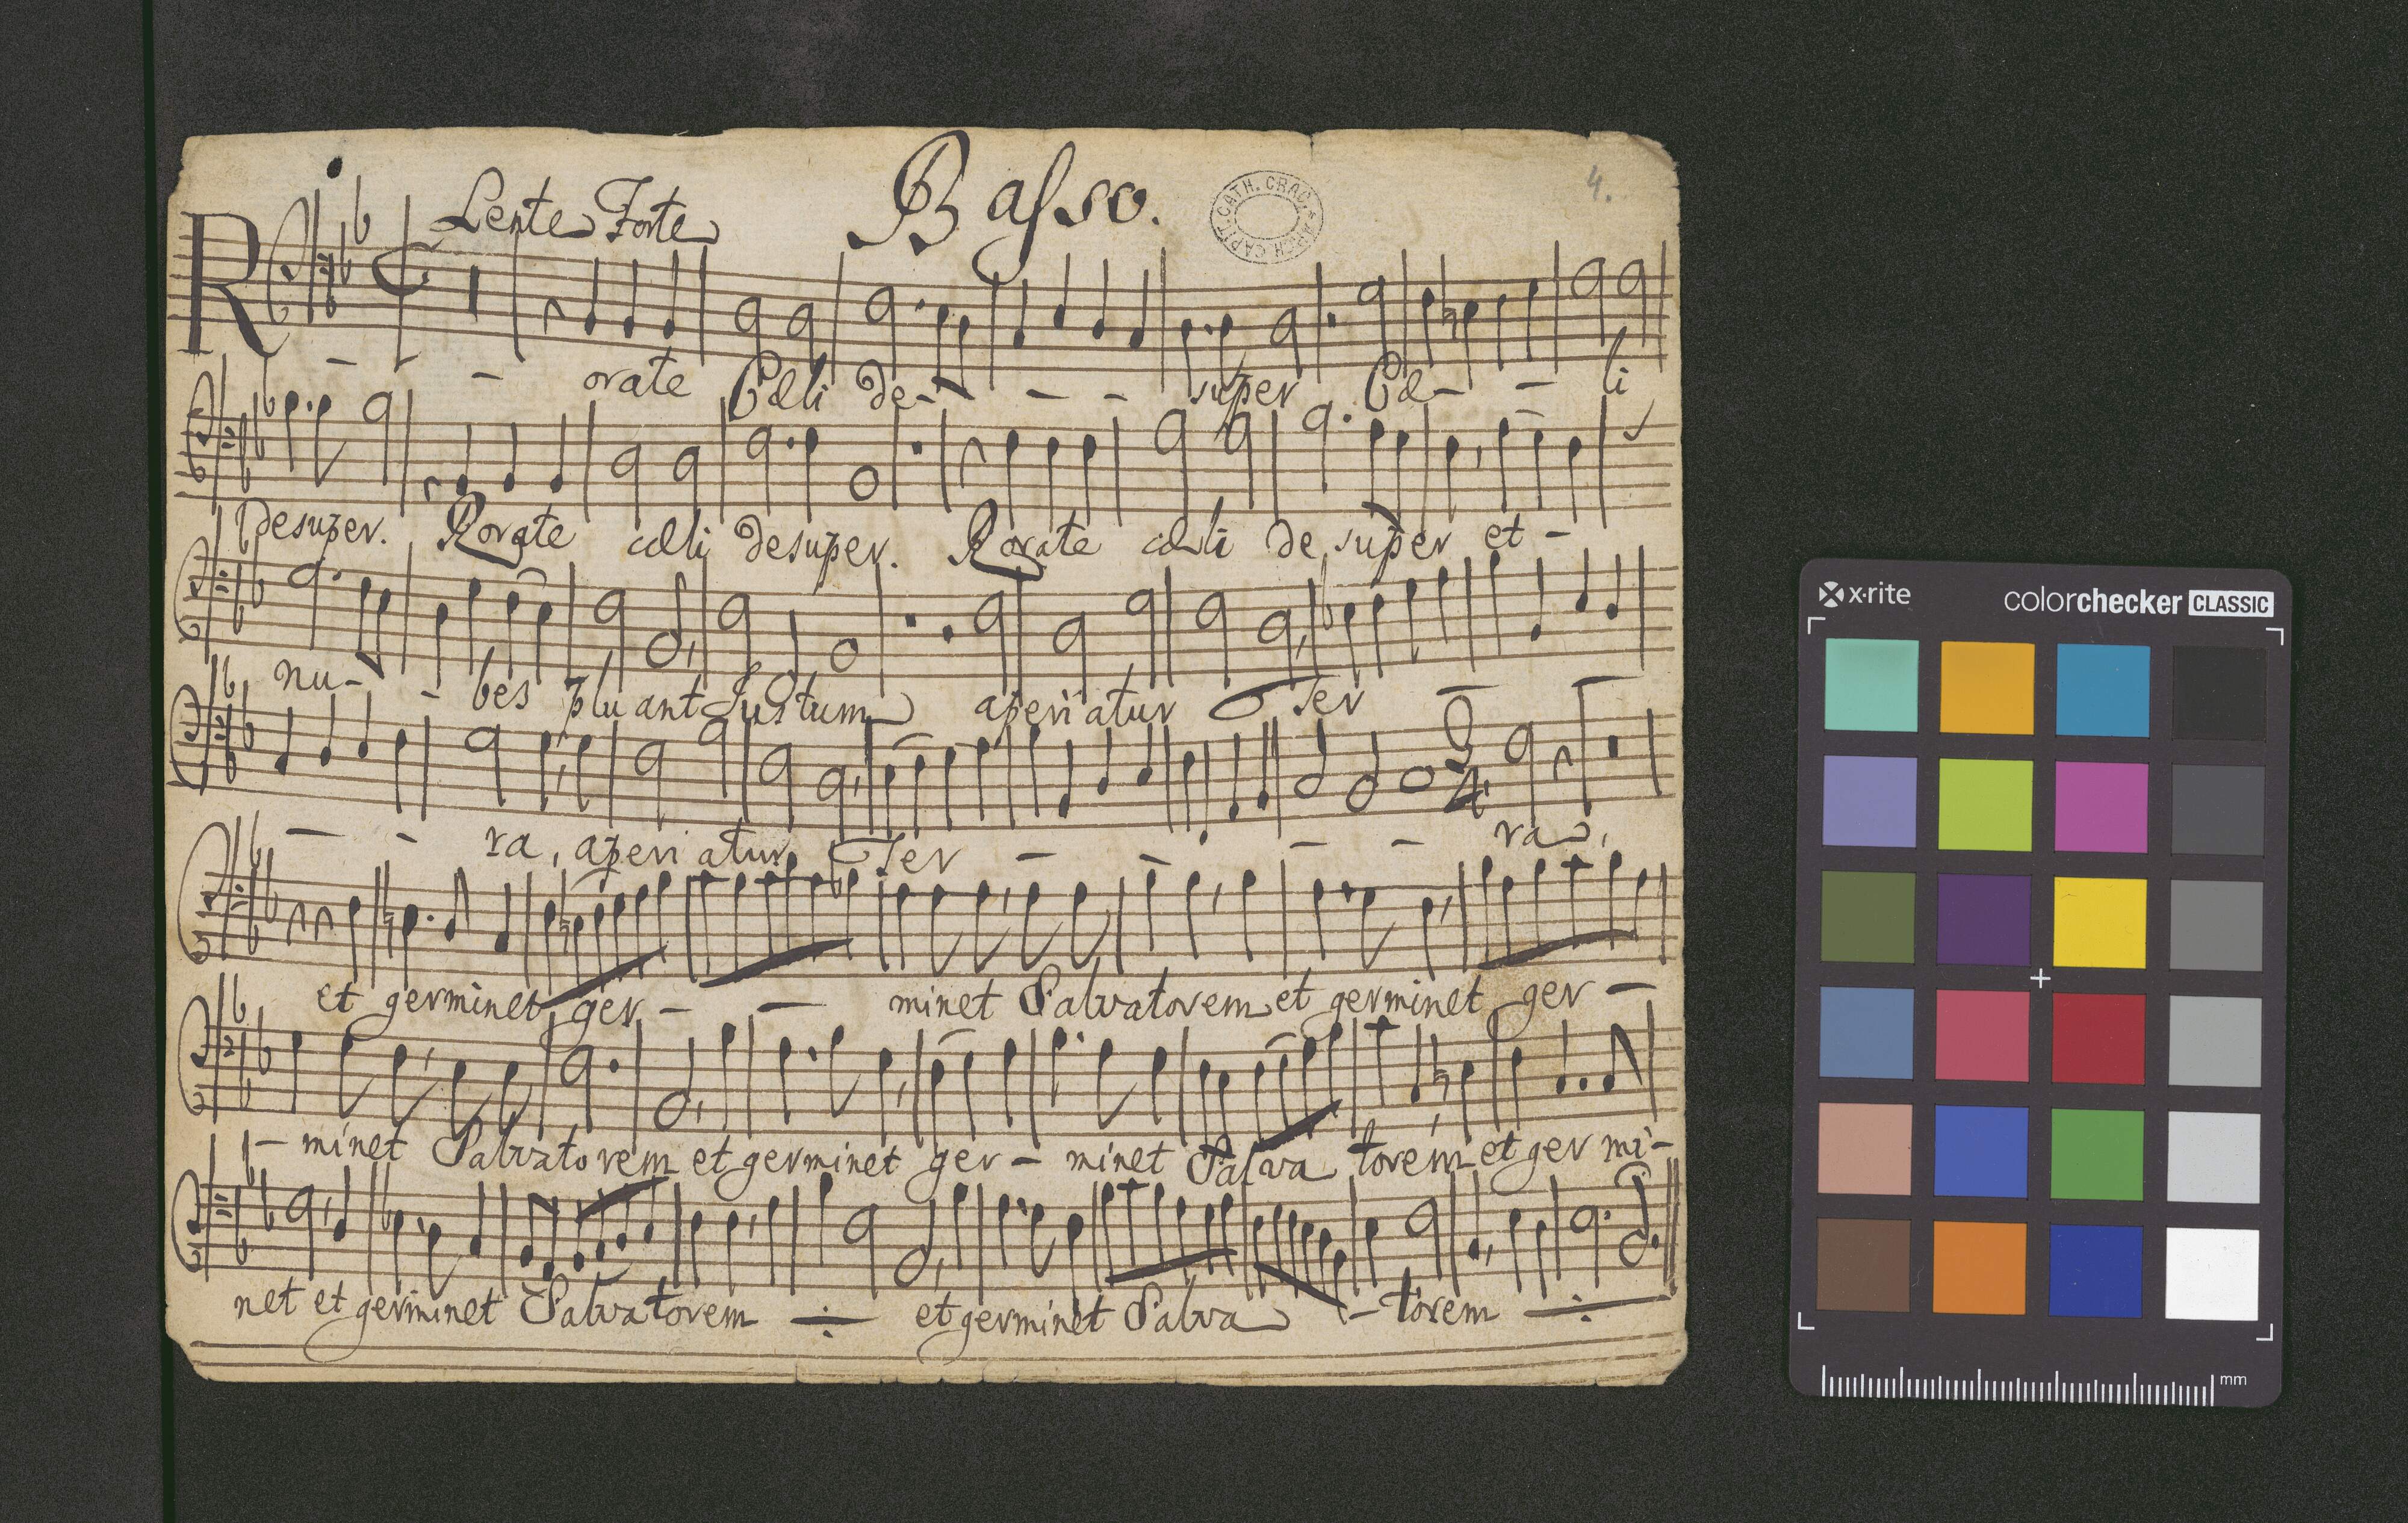 Basso.
4.
Lente Forte
CAPIT. CATH. CRAC.
Rorate Cæli de - - - super Cæ - - li
desuper. Rorate cæli desuper. Rorate cæli de super et -
nu - - bes pluant Justum aperiatur Ter
3
4
- - ra, aperi atur Ter - - - - ra,
et germinet ger - - minet Salvatorem et germinet ger -
- minet Salvatorem et germinet ger - minet Salva torem et ger mi -
net et germinet Salvatorem ÷ et germinet Salva - torem ÷
x·rite
colorchecker CLASSIC
mm